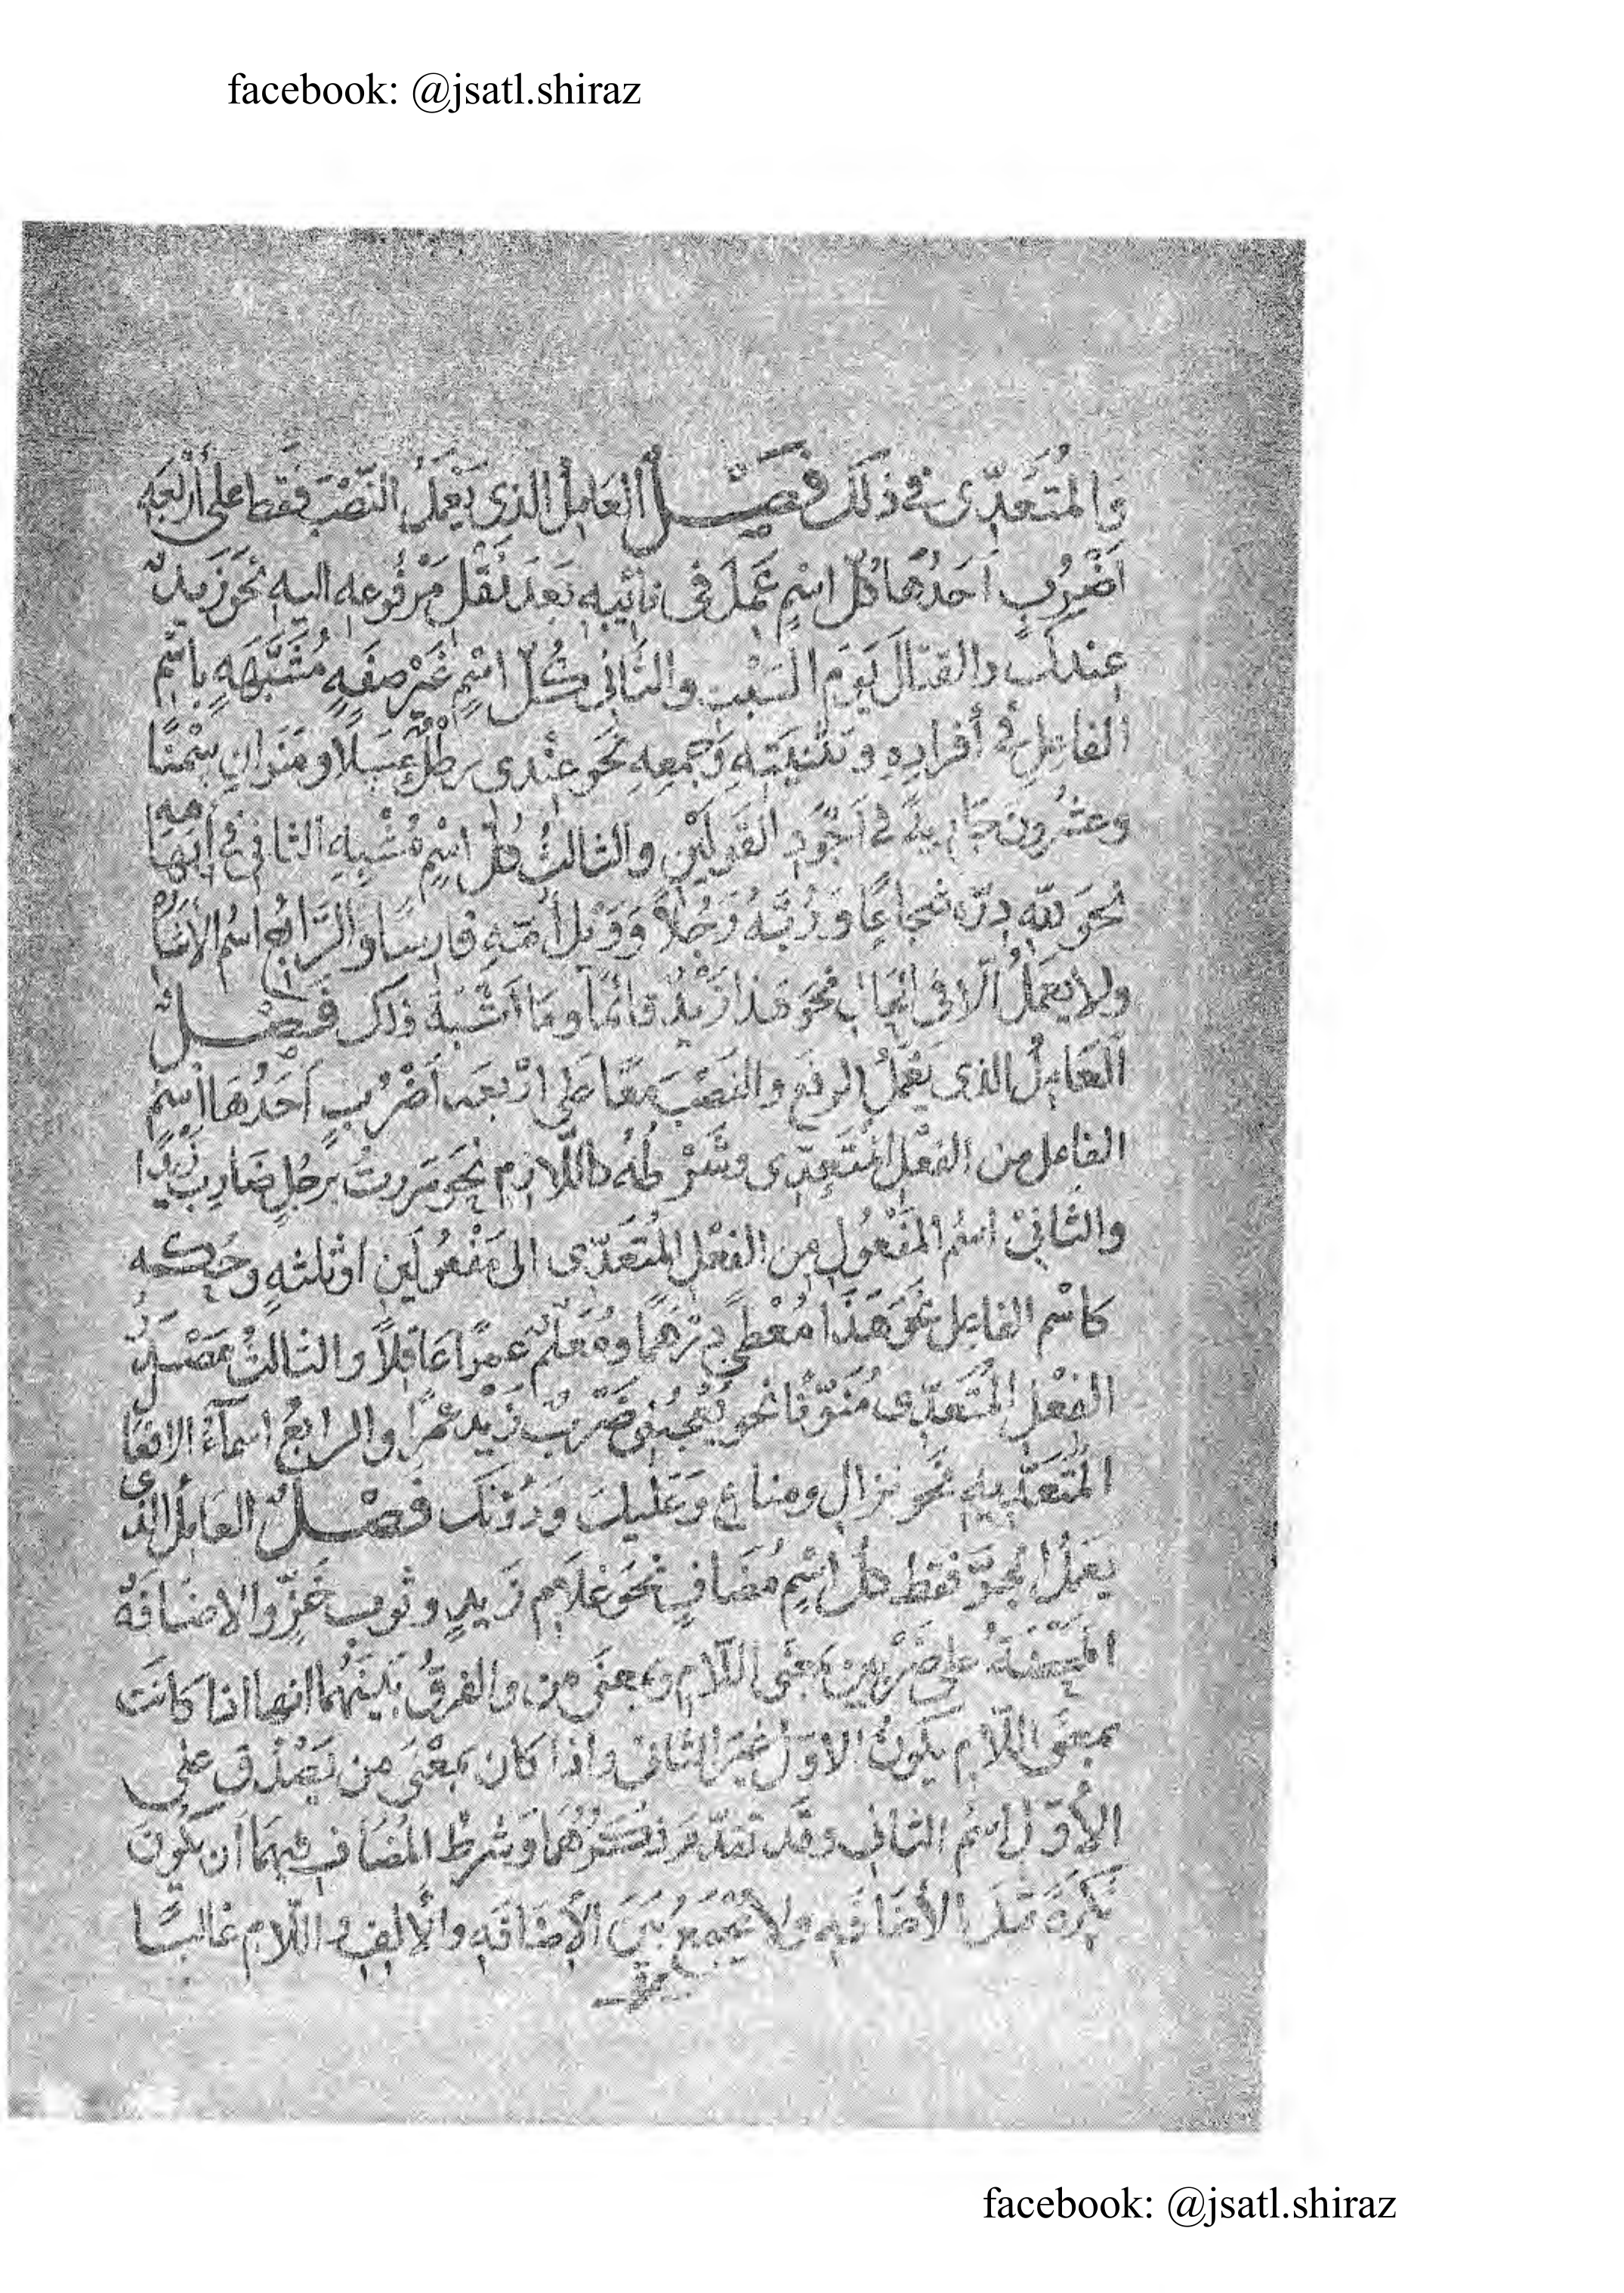 facebook: @jsatl.shiraz
وَالمُتَعَدِّى فى ذلكَ فَصْــلٌ العَامِلُ الذى يَعْمَلُ النَّصْبَ فَقَط على أَرْبَعَهِ
اَضْرُبٍ اَحَدُهَا كُلّ اسْمٍ عَمِلَ فى نائبِهِ بَعدَ نَقْل مَرْفُوعِهِ اليهِ نحوَ زَيدٌ
عِندكَ والقتالَ يَوَم السَّبْتِ والثَّانِى كُلّ اسْمٍ غَيْر صفَهٍ مُشَبَّهَهٍ باسْمِ
الفاعِلِ فى أفرادِهِ وَتَثْنِيَتِهِ وَجَمْعِهِ نَحَو عنْدى رطْلٌ عَسَلًا ومَنَوانِ سَمْنًا
وعشرُونَ جَاريةً فى اَجْوَدِ القَولَيْنِ والثالثُ كُلّ اسْمٍ مُشْبِهِ الثانى فى
نحوَ للّهِ دَرّه شجاعًا وَرُبَّهُ رَجُلاً وَوَيْل أُمّهِ فارسًا والرَّابعُ اسْمُ الأشَا
ولا يعْمَلُ الّا فى الحَال نحوَ هَذا زَيْدٌ قائمًا ومَا اَشْبَهَ ذلك فَصْــلٌ
العَامِلُ الذى يَعْمَلُ الرفعَ والنَصْبَ معًا على ارْبعَه اَضْرُبٍ اَحَدُهَا اسْم
الفاعل من الفعْل المُتَعدّى وشَرْطُهُ كاللّازم نحو مَررتُ برَجُلٍ ضَارِبٍ زَيدًا
والثَّانِىْ اسْمُ المَفْعُولِ مِن الفعْل المُتَعَدّى الى مَفْعُولَينِ اوثلثهٍ وحُكمهِ
كاسْم الفاعِل نحوَ هَذَا مُعْطًى درْهَمًا ومُعَلَّمٌ عَمرًا عَاقِلًا والثالثُ مَصْدَرُ
الفِعْل المُتَعَدّى مُنَوّنًا نحو يُعْجبُنى ضَرْبٌ زَيْد عَمرًا والرابعُ اسمآءُ الافعَا
المُتَعَدّيهِ نحَو نزال ومناع وَعَليكَ وَدُوْنَكَ فَصْــلٌ العَامِلُ الذى
يَعْمَلُ الجَرَّ فقط كلّ اسْمٍ مُضَافٍ نحوَ غلَام زَيدٍ وثوب خَزٍّ والاضَافَهُ
على ضَرْبَين بمعْنَى اللّام وبمعنَى من والفرقُ بَينَهُمَا انها اذا كانَت
بمعنَى اللّام يكونُ الاوّلُ غيرَ الثانى واذا كان بمعْنَى من يَصْدُق على
الأوّل اسْمُ الثانى وقد تقدّم ذكْرُهُمَا وشَرطُ المُضَاف فيهمَا اَن يكونَ
نكرَةً الأضافَهِ ولا يُجمَعُ بَيْنَ الأضافَهِ والألفِ واللّام غالبًا
facebook: @jsatl.shiraz